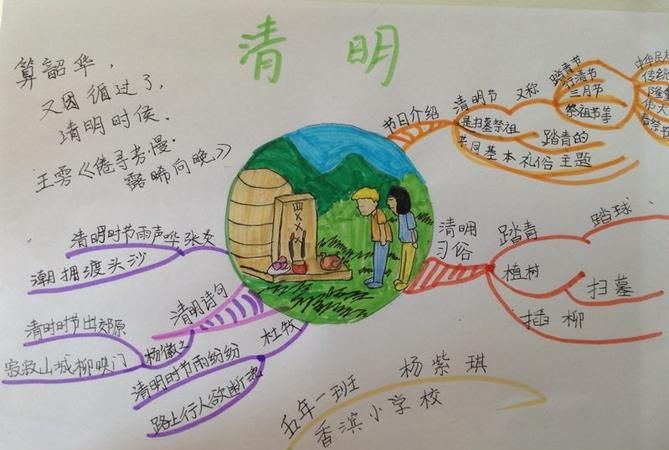 清明
算韶华，
又因循过了，
清明时候.
王雱《倦寻芳慢·
露晞向晚》
节日介绍
清明节
是扫墓祭祖
又称
踏青节
行清节
三月节
祭祖节等
踏青的
共同基本礼俗主题
中华民
传统
隆
清明
习俗
踏青
踏球
植树
扫墓
插柳
清明诗句
张炎
清明时节雨声哗
潮拥渡头沙
杨徽之
清时时节出郊原
寂寂山城柳映门
杜牧
清明时节雨纷纷
路上行人欲断魂
五年一班 杨紫琪
香滨小学校